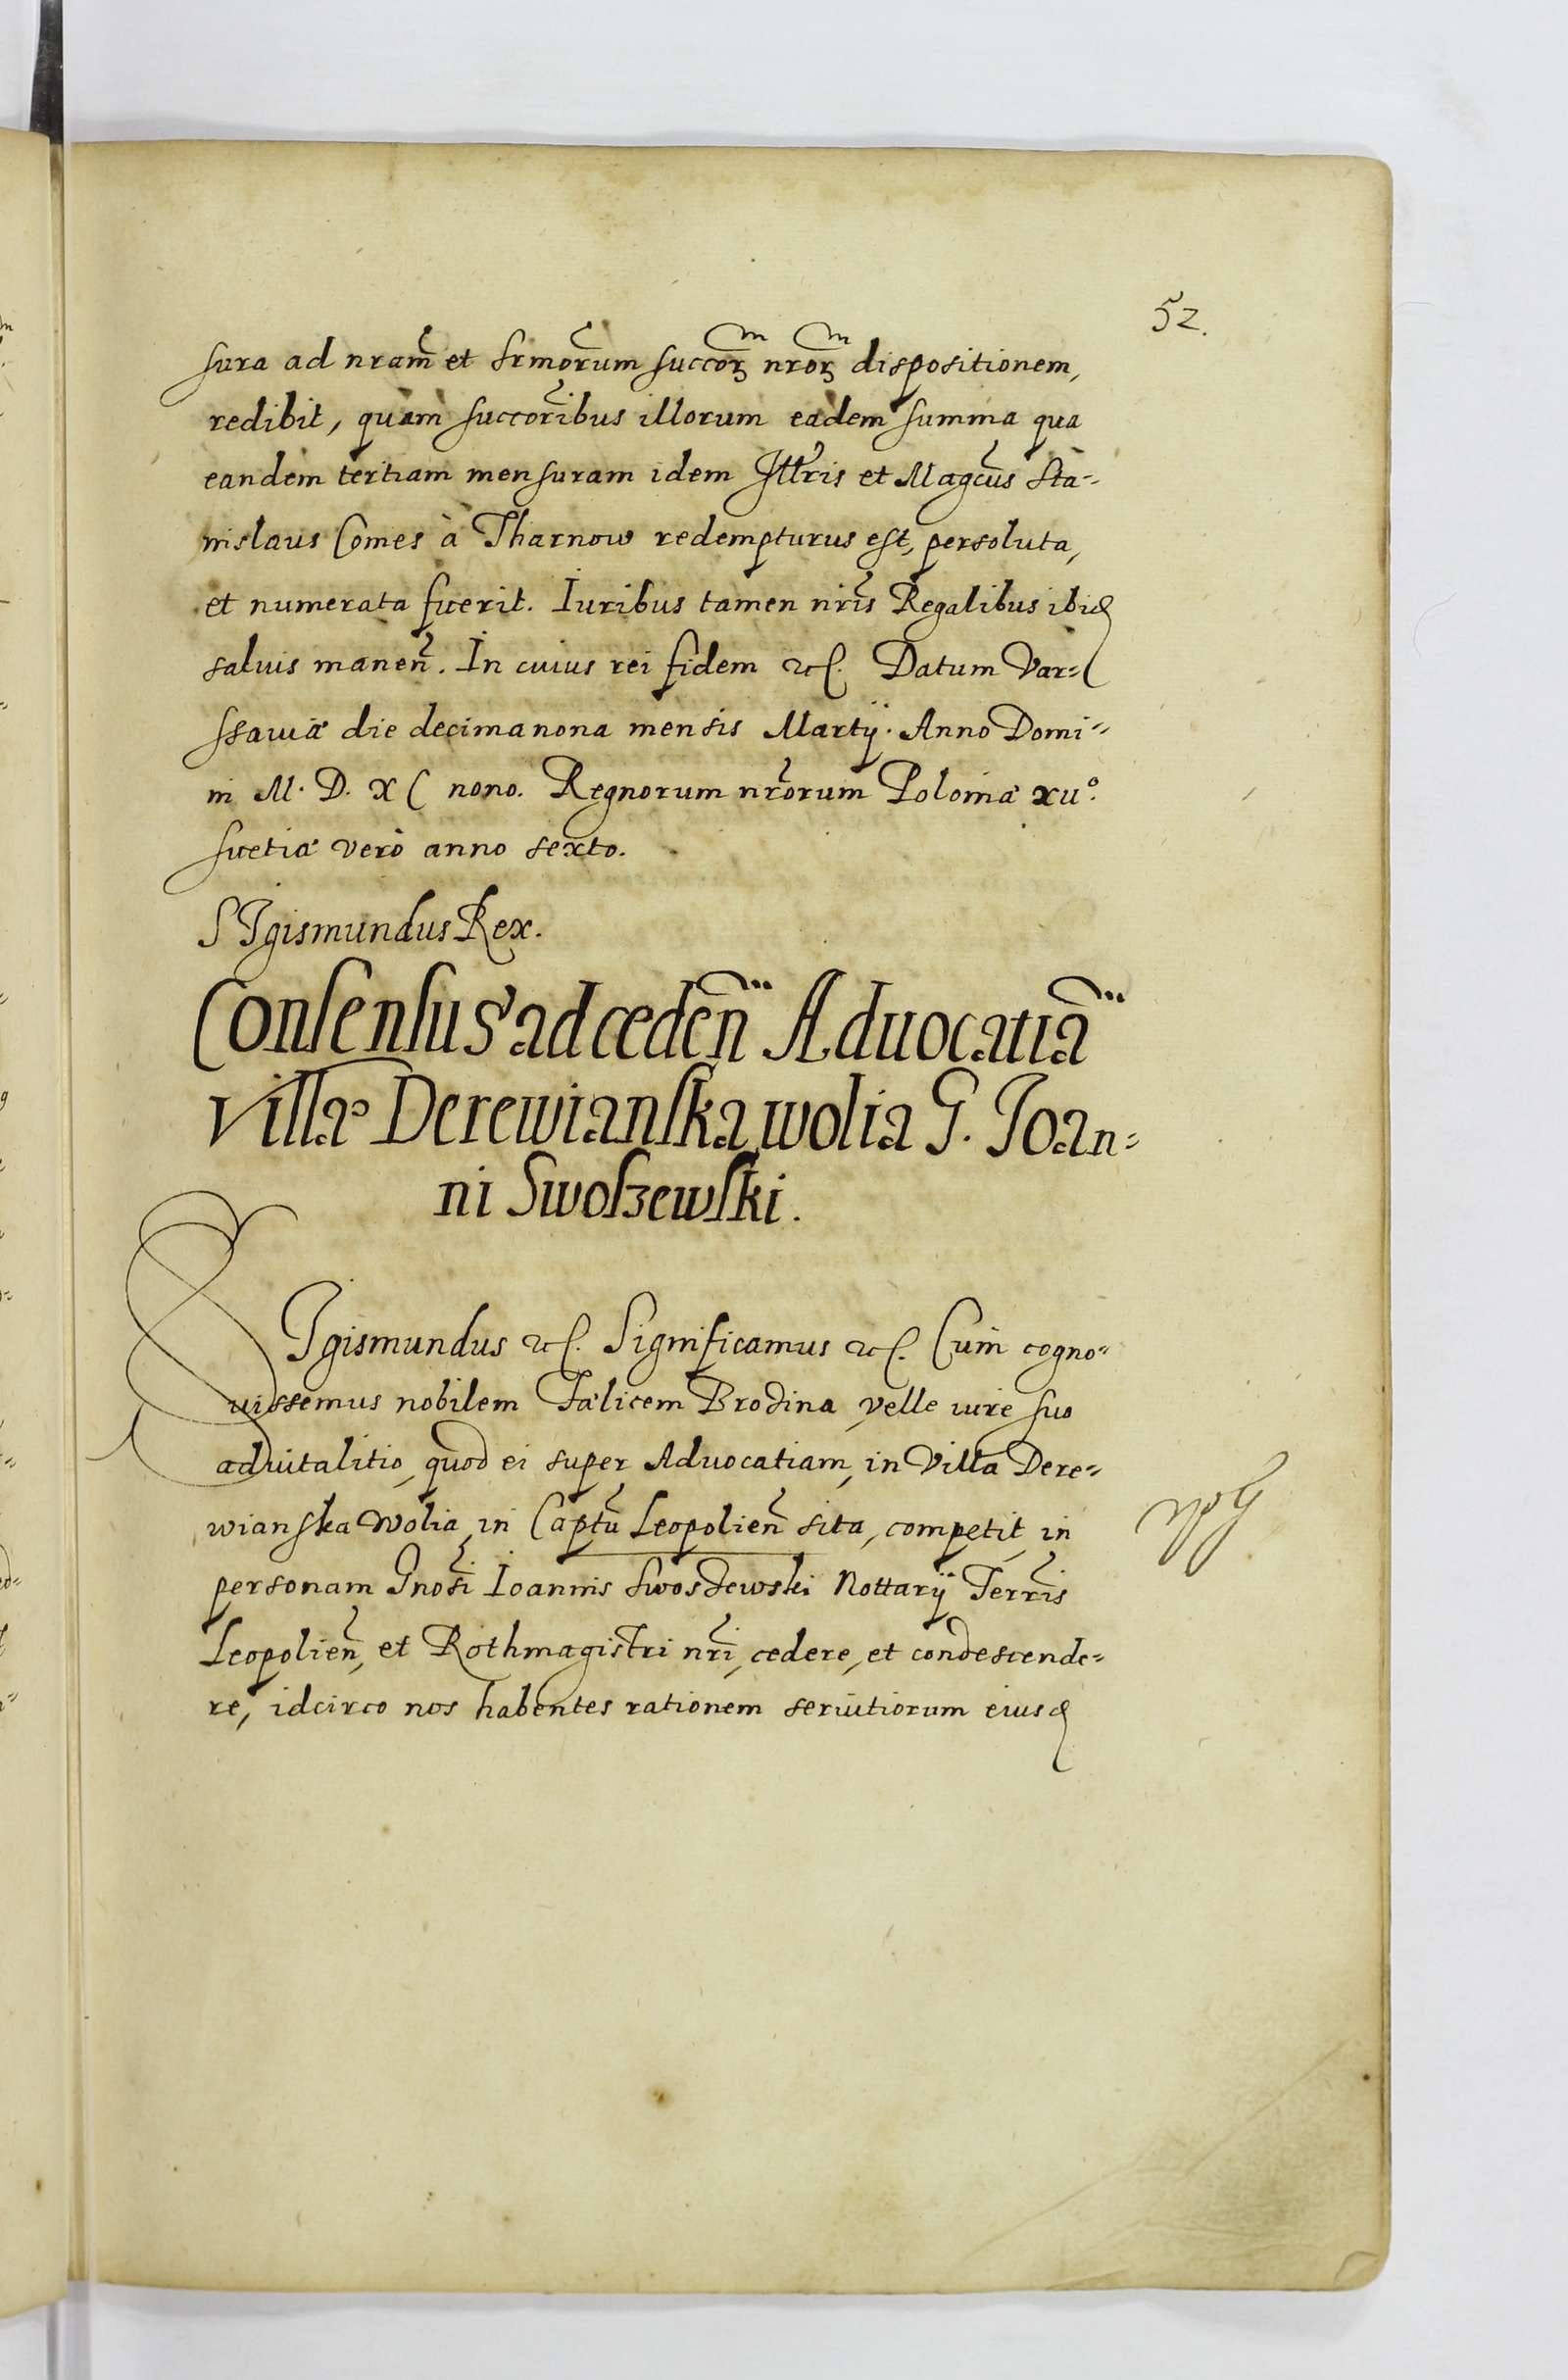 52.
sura ad nram̃ et srmõrum succor̃ nror̃ dispositionem,
redibit, quàm succoribus illorum eadem summa qua
eandem tertiam mensuram idem Illris et Magcus Sta-
nislaus Comes à Tharnow redempturus est, persoluta,
et numerata fuerit. Iuribus tamen nris Regalibus ibid
saluis maneñ. In cuius rei fidem etc. Datum Var-
ssauiæ die decimanona mensis Martij. Anno Domi-
ni M. D. XC nono. Regnorum nrorum Poloniæ xu°.
suetiæ verò anno sexto.
SIgismundus Rex.
Consensus ad cedeñ Aduocatiã
villæ Derewianska wolia G. Joan-
ni Swoszewski.
SIgismundus etc. Significamus etc. Cum cogno-
uissemus nobilem Fælicem Brodina velle iure suo
aduitalitio, quod ei super Aduocatiam, in Villa Dere-
wianska Wolia, in Captũ Leopolieñ sita, competit, in
personam Gnosi Ioannis Swosdewski Nottarij Terris
Leopolieñ, et Rothmagistri nri, cedere, et condescende-
re, idcirco nos habentes rationem seruitiorum eiusd